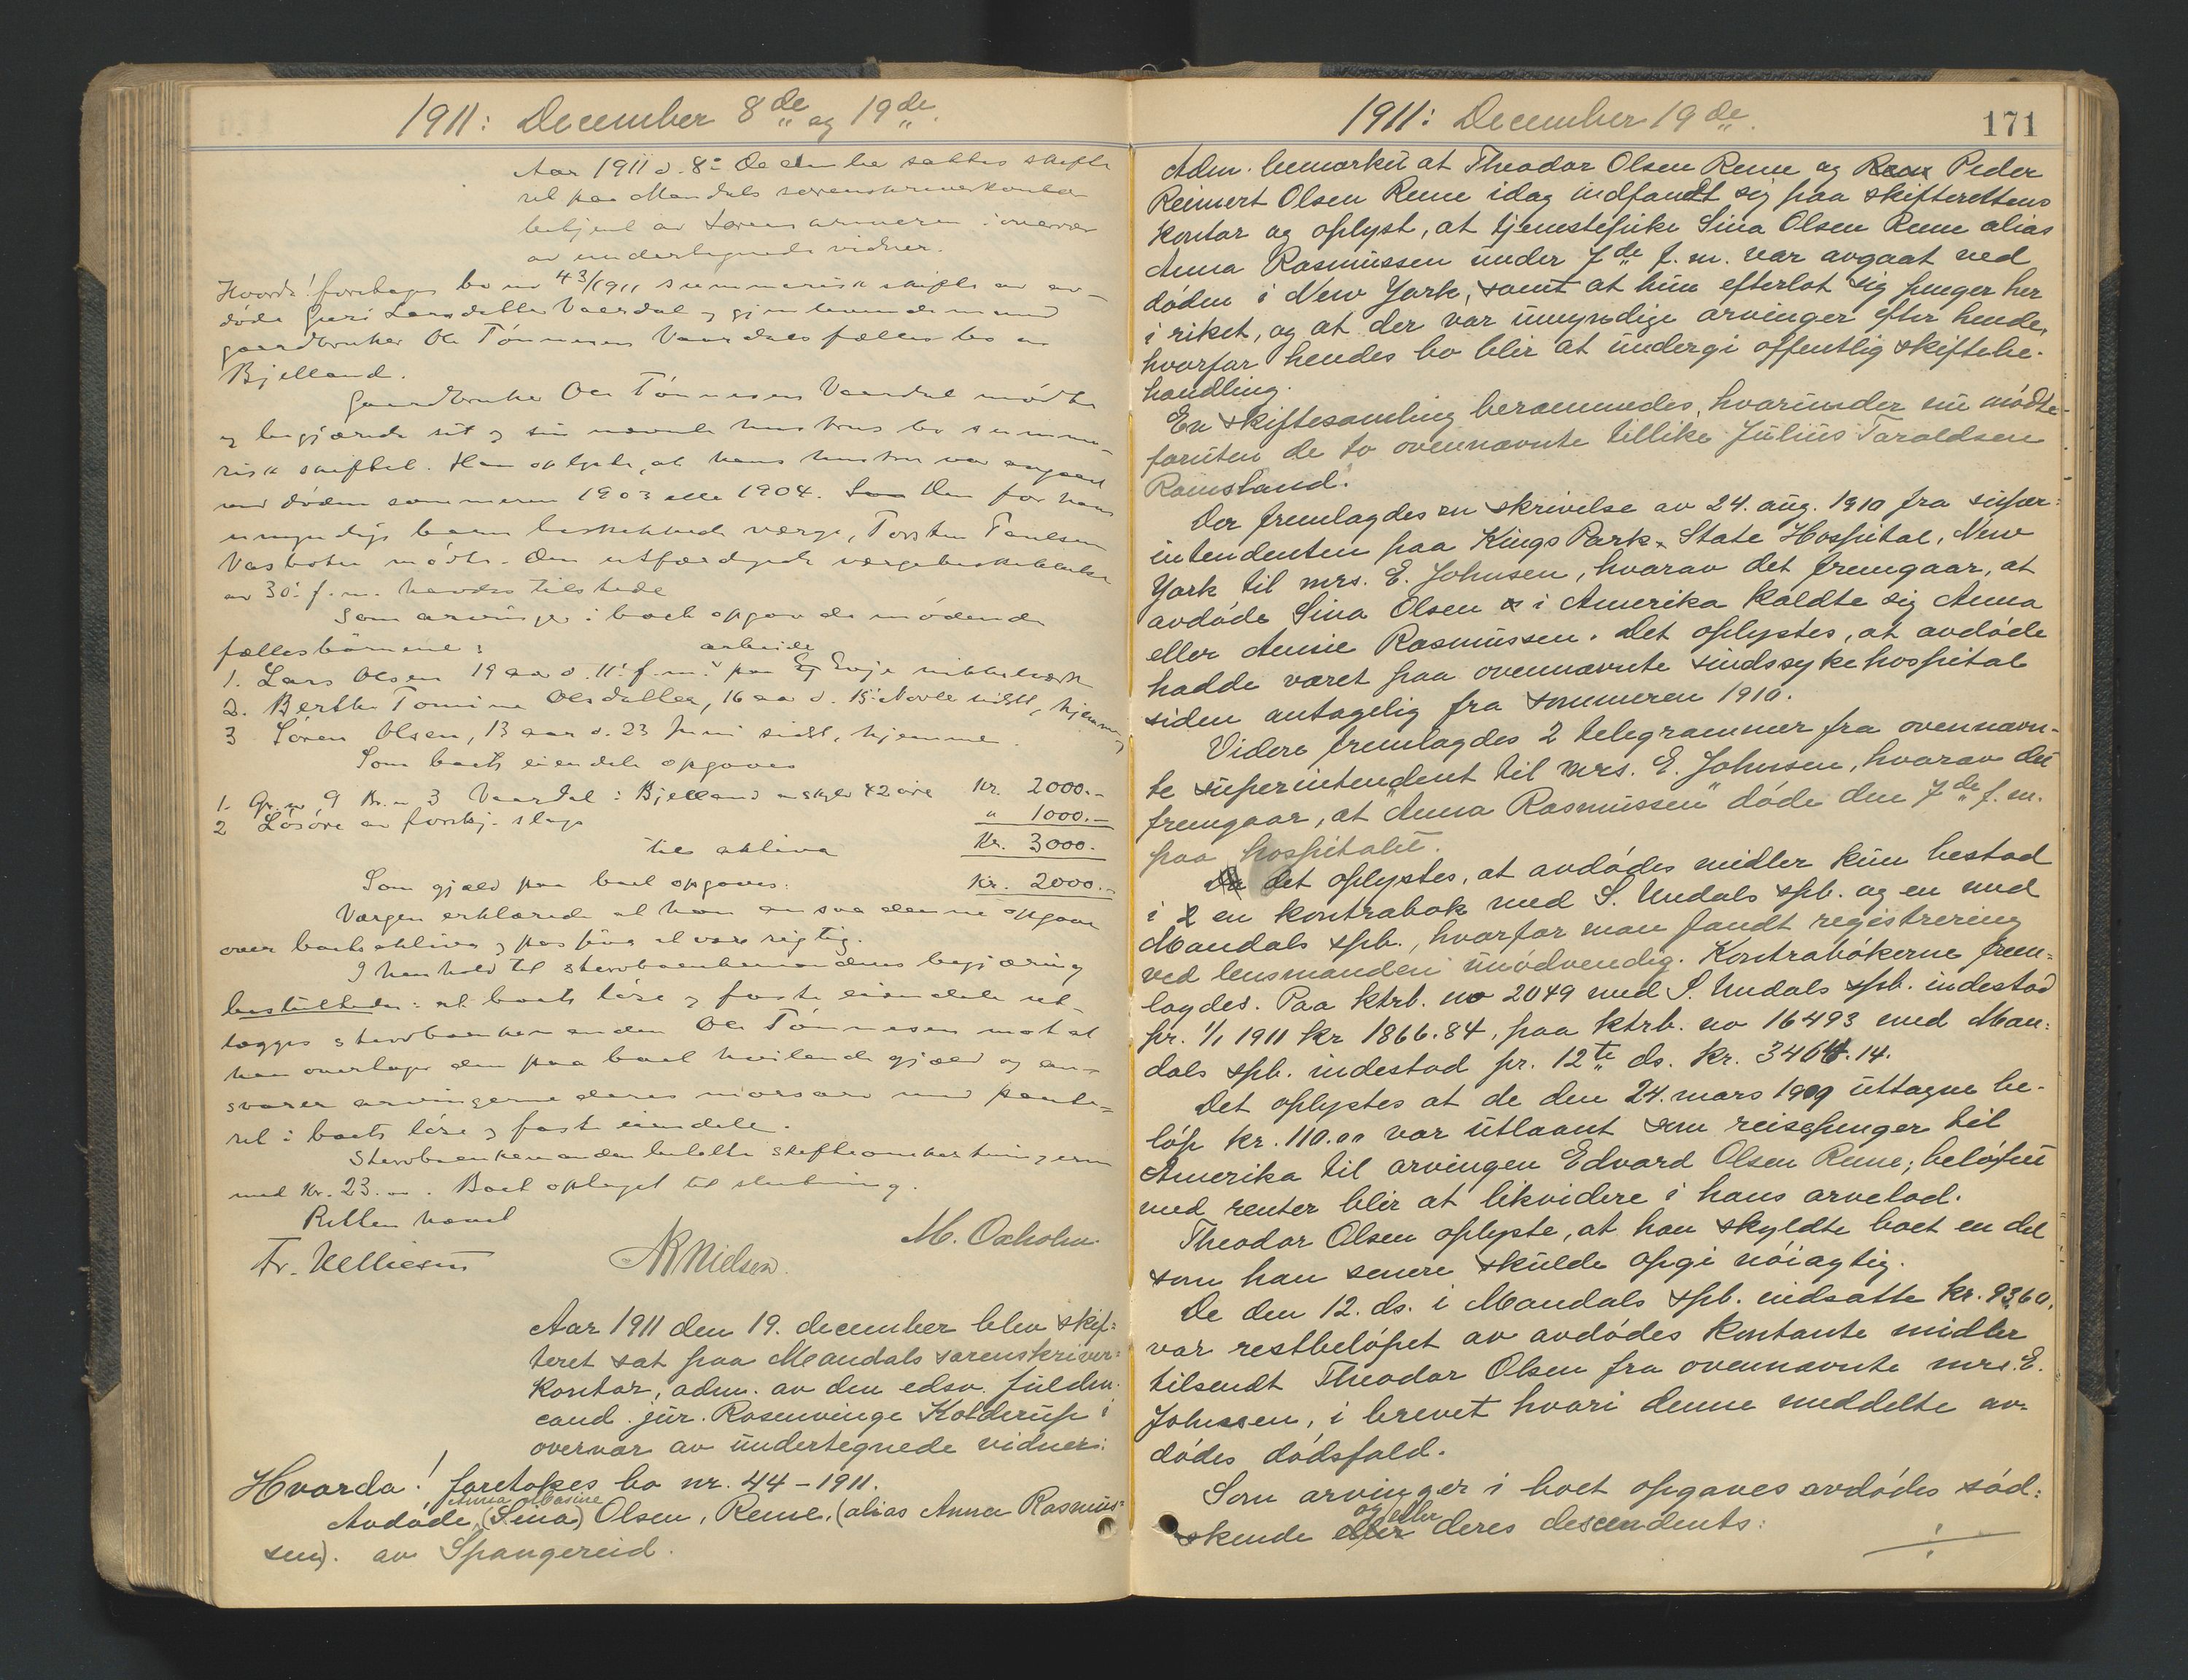 1911: December 8de og 19de.
Aar 1911 d. 8: December sattes skifte
ret paa Mandals sorenskriverkontor
betjent av sorenskriveren i overvær
av undertegnede vidner.
Hvorda! foretages bo nr 43/1911 summarisk skifte av av-
døde Guri Larsdatter Vaardal og gjenlevende mand
gaardbruker Ole Tønnesen Vaardals fællesbo av
Bjelland.
Gaardbruker Ole Tønnesen Vaardal mødte
og begjærede sit og sin nævnte hustrus bo summa-
risk skiftet. Han oplyste, at hans hustru var avgaaet
ved døden sommeren 1903 eller 1904. Den for hans
umyndige børn beskikkede værge, Torsten Paulsen
mødte. Den utfærdigede værgebeskikkelse
av 30: f.m. havdes tilstede
Som arvinger i boet opgav de mødende
fællesbørnene:
1. Lars Olsen 19 aar d. 11: f.m. arbeide paa Evje nikkelverk
2. Berthe Tomine Olsdatter, 16 aar d. 15: Novbr sidst, hjemme og
3 Søren Olsen, 13 aar d. 23 Juni sidst, hjemme.
Som boets eiendele opgaves
1. Gr. nr 9 Br. nr 3 Vaardal i Bjelland av skyld 42 øre Kr. 2000.-
2 Løsøre av forskj. slags " 1000.-
tils aktiva Kr. 3000.-
Som gjæld paa boet opgaves: Kr. 2000.-
Værgen erklærede at han ansaa denne opgave
over boets aktiva og passiva at være rigtig.
I henhold til stervboenkemandens begjæring
besluttedes: at boets løse og faste eiendele ut-
lægges stervboenkemanden Ole Tønnesen mot at
han overtager den paa boet hvilende gjæld og an-
svarer arvingerne deres morsarv med pante-
ret i boets løse og faste eiendele.
Stervboenkemanden betalte skifteomkostningerne
med Kr. 23.00. Boet optaget til slutning.
Retten hævet
M. Oxholm.
Fr. Kelliesen NKNielsen.
Aar 1911 den 19. december blev skif=
teret sat paa Mandals sorenskriver=
kontor, adm. av den edsv. fuldm.
cand. jur. Rosenvinge Kolderup i
overvær av undertegnede vidner:
Hvorda! foretokes bo nr. 44-1911.
Anna Masine
Avdøde (Sina) Olsen, Reme, (alias Anna Rasmus=
sen). av Spangereid.
1911: December 19de. 171
Adm. bemærket at Theodor Olsen Reme og Peder
Reimert Olsen Reme idag indfandt sig paa skifterettens
kontor og oplyst, at tjenestepike Sina Olsen Reme alias
Anna Rasmussen under 7de f. m. var avgaat ved
døden i New York, samt at hun efterlot sig penger her
i riket, og at der var umyndige arvinger efter hende,
hvorfor hendes bo blir at undergi offentlig skiftebe-
handling.
En skiftesamling berammedes, hvorunder nu mødte
foruten de to ovennævnte tillike Julius Taraldsen
Ramsland.
Der fremlagdes en skrivelse av 24. aug. 1910 fra super=
intendenten paa Kings Park State Hospital, New
York til mrs. E. Johnsen, hvorav det fremgaar, at
avdøde Sina Olsen i Amerika kaldte sig Anna
eller Annie Rasmussen. Det oplystes, at avdøde
hadde været paa ovennævnte sindssykehospital
siden antagelig fra sommeren 1910.
Videre fremlagdes 2 telegrammer fra ovennævn-
te superintendent til mrs. E. Johnsen, hvorav det
fremgaar, at "Anna Rasmussen" døde den 7de f. m.
paa hospitalet.
det oplystes, at avdødes midler kun bestod
i en kontrabok med S. Undals spb. og en med
Mandals spb., hvorfor man fandt registrering
ved lensmanden unødvendig. Kontrabøkerne frem=
lagdes. Paa ktrb. no 2049 med S. Undals spb. indestod
pr. 1/1 1911 kr 1866.84, paa ktrb. no 16493 med Man=
dals spb. indestod pr. 12te ds. kr. 3464.14.
Det oplystes at de den 24. mars 1909 uttagne be-
løp kr. 110.00 var utlaant som reisepenger til
Amerika til arvingen Edvard Olsen Reme; beløpet
med renter blir at likvidere i hans arvelod.
Theodor Olsen oplyste, at han skyldte boet en del
som han senere skulde opgi nøiagtig.
De den 12. ds. i Mandals spb. indsatte kr. 93,60,
var restbeløpet av avdødes kontante midler
tilsendt Theodor Olsen fra ovennævnte mrs. E.
Johnssen, i brevet hvori denne meddelte av-
dødes dødsfald.
Som arvinger i boet opgaves avdødes sød=
og/eller
skende eller deres descendents: